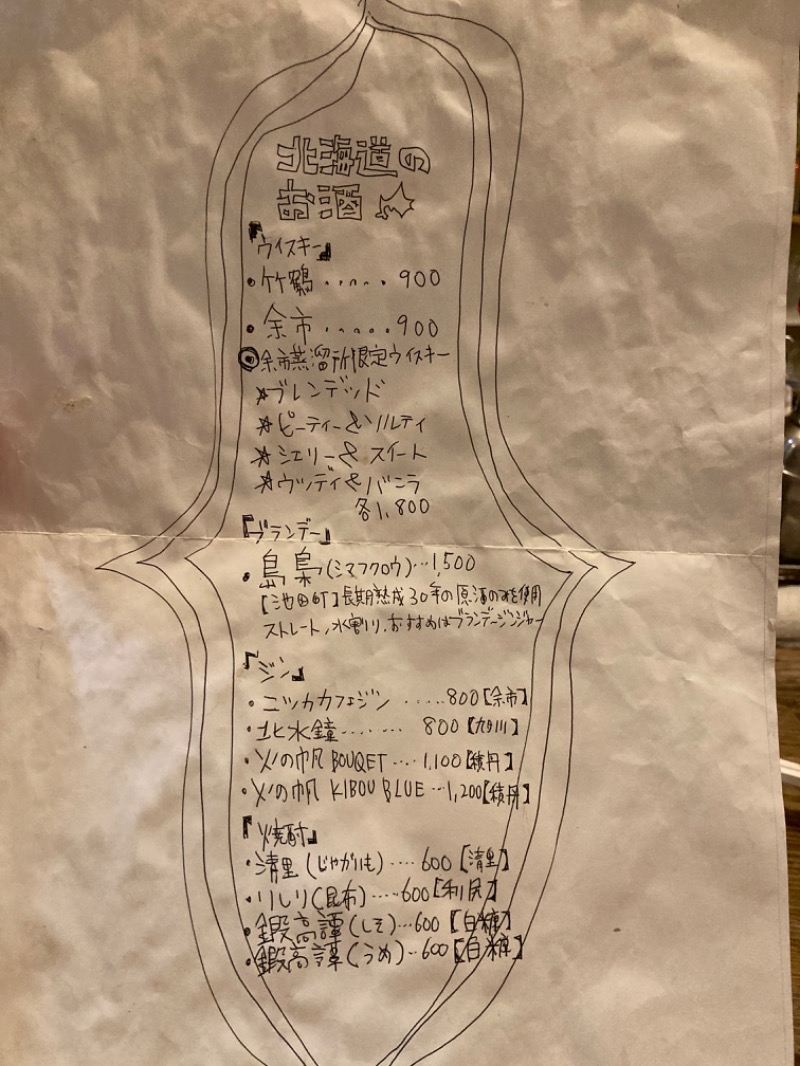 北海道の
お酒
『ウイスキー』
・竹鶴・・・・・900
・余市・・・・・900
◎余市蒸溜所限定ウイスキー
☆ブレンデッド
☆ピーティー&ソルティ
☆シェリー&スイート
☆ウッディ&バニラ
各1,800
『ブランデー』
・島梟(シマフクロウ)・・・1,500
[池田町]長期熟成30年の原酒のみを使用
ストレート,水割り,おすすめはブランデージンジャー
『ジン』
・ニッカカフェジン ・・・・・800[余市]
・北水鐘・・・・・・・ 800
・火の帆 BOUQET・・・・1,100[積丹]
・火の帆 KIBOU BLUE・・・1,200[積丹]
『焼酎』
・清里(じゃがいも)・・・・600[清里]
・りしり(昆布)・・・・・600[利尻]
・鍛高譚(しそ)・・・600[白糠]
・鍛高譚(うめ)・・・600[白糠]